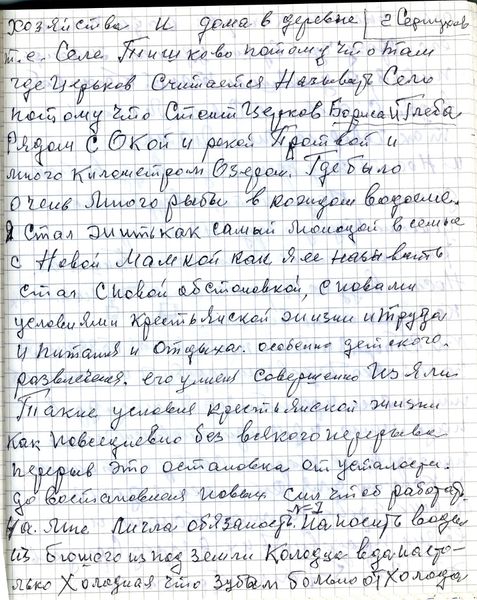 хозяйства и дома в деревне г Серпухов
т.е. Село Тишково потому что там
где церьков Считается Называть Село
потому что Стоит Церков Бориса и Глеба
Рядом С ОКой и рекой Протвой и
много Километром Озером. Где было
очень много рыбы в каждом водоеме.
Я стал жить как самый молодой в семье
с Новой Мамкой как я ее называть
стал с новой обстановкой, с новыми
условиями крестьянской жизни и труда
и питания и отдыха. особенно детского.
развлечения. его у меня совершенно изъяли
Такие условия крестьянской жизни
как повседневно без всякого перерыва
перерыв это остановка от усталости.
до востановления новых сил чтоб работат
На. мне лигла обязаность. №=1 Наносить воды
из большого из под земли Колодца вода насто-
лько Холодная что Зубым больно от Холода